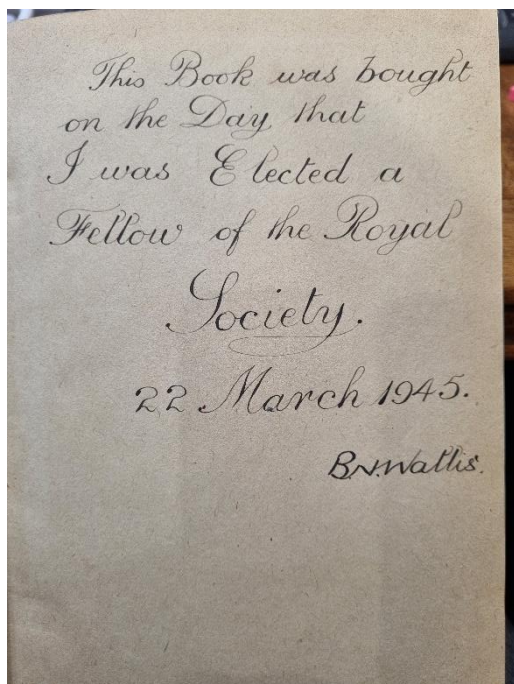 This Book was bought
on the Day that
I was Elected a
Fellow of the Royal
Society.
22 March 1945.
B.N.Wallis.